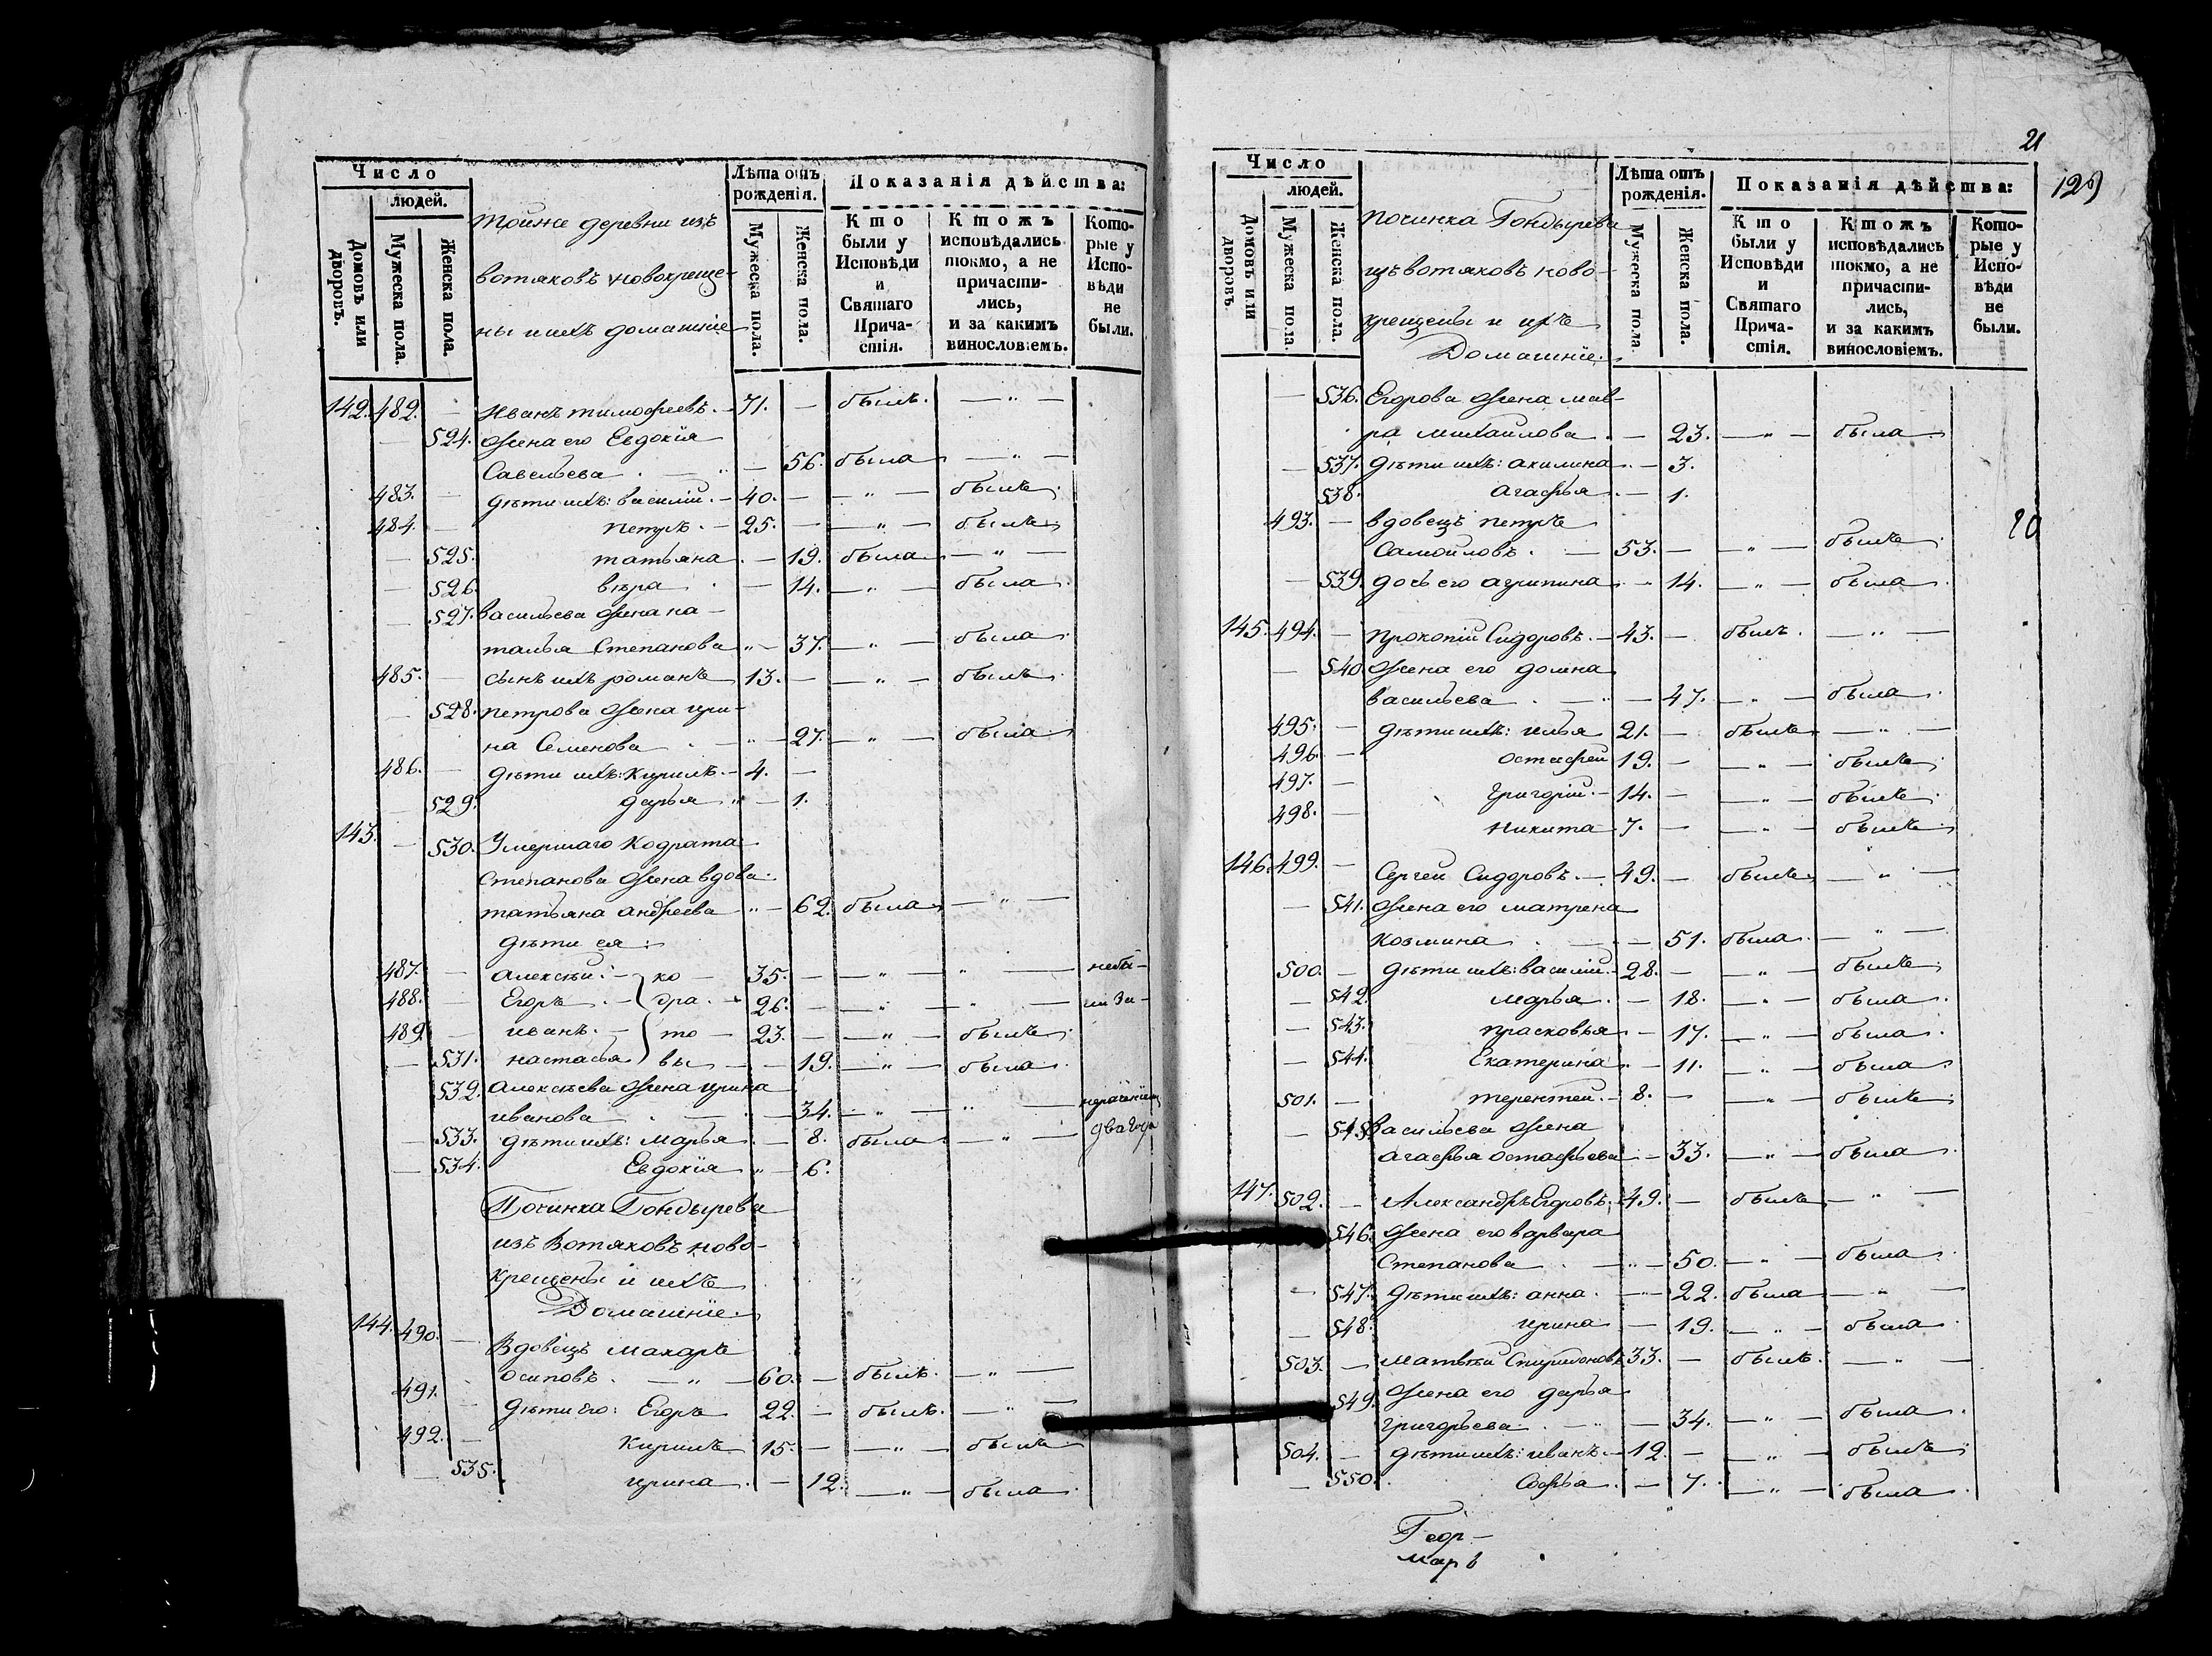 Число
людей.
Домовъ или дворовъ.
Мужеска пола.
Женска пола.
Тойже деревни изъ
вотяковъ новокреще-
ны и ихъ домашніе
Лѣта отъ рожденія.
Мужеска пола.
Женска пола.
Показанія дѣйства:
Кто были у Исповѣди и Святаго Причастія.
Ктожъ исповѣдались токмо, а не причастились, и за какимъ винословіемъ.
Которые у Исповѣди не были.
142. 482. — Иванъ тимофеевъ. — 71. — былъ. — „ —
— 524. жена его Евдокія
Савельева . — „ — 56. была — „ —
483. — дѣти ихъ: василій. — 40. — — „ — былъ.
484. — петръ. — 25. — — „ — былъ.
— 525. татьяна . — 19. была — „ —
— 526. вѣра . — 14. — „ — была.
— 527. васильева жена на-
талья Степанова „ — 37. — „ — была.
485. — сынъ ихъ романъ 13. — — „ — былъ.
— 528. петрова жена ири-
на Семенова . — „ — 27. — „ — была.
486. — дѣти ихъ: Кирилъ. — 4. —
— 529. дарья „ — 1.
143. — 530. Умершаго Кодрата
Степанова жена вдова
татьяна андреева „ — 62. была — „ —
дѣти ея:
487. — алексѣй. — ко — 35. — — „ — „ —
488. — Егоръ . — дра. — 26. — — „ — „ —
489. — иванъ. — то — 23. — — „ — былъ.
— 531. настасья вы — — 19. — „ — была.
532. алексѣева жена ирина
иванова . — „ — 34. — „ — „ — нерачѣніемъ
— 533. дѣти ихъ: марья . — 8. была — „ — два года
— 534. Евдокія „ — 6.
Починка Гондырева
изъ Вотяковъ ново-
крещены и ихъ
Домашніе.
144. 490. — Вдовецъ макаръ
осиповъ . — „ — 60. — былъ. — „ —
491. — дѣти его: Егоръ 22. — былъ. — „ —
492. — Кирилъ 15. — — „ — былъ.
— 535. ирина . — 12. — „ — была.
21
129
Число
людей.
Домовъ или дворовъ.
Мужеска пола.
Женска пола.
починка Гондырева
изъ вотяковъ ново-
крещены и ихъ
Домашніе.
Лѣта отъ рожденія.
Мужеска пола.
Женска пола.
Показанія дѣйства:
Кто были у Исповѣди и Святаго Причастія.
Ктожъ исповѣдались токмо, а не причастились, и за какимъ винословіемъ.
Которые у Исповѣди не были.
— 536. Егорова жена мав-
ра михайлова . — 23. — „ — была.
— 537. дѣти ихъ: акилина . — 3.
538. агафья . — 1.
493. — вдовецъ петръ
Самойловъ . — 53. — — „ — былъ.
20
— 539. дочь его агрипина . — 14. — „ — была.
145. 494. — прокопій Сидоровъ. — 43. — былъ. — „ —
— 540. жена его домна
васильева . — „ — 47. — „ — была.
495. — дѣти ихъ: илья 21. — былъ — „ —
496. — остафей 19. — — „ — былъ.
497. — григорій. — 14. — — „ — былъ.
498. — никита 7. — — „ — былъ.
146. 499. — Сергей Сидоровъ. — 49. — былъ — „ —
— 541. жена его матрена
козмина . — „ — 51. была. — „ —
500. — дѣти ихъ: василій. — 28. — — „ — былъ.
— 542. марья . — 18. — „ — была.
— 543. прасковья . — 17. — „ — была.
— 544. Екатерина . — 11. — „ — была.
501. — терентей. — 8. — — „ — былъ.
— 545. васильева жена
агафья остафьева . — 33. — „ — была.
147. 502. — Александръ Егоровъ. 49. — былъ — „ —
546. жена его варвара
Степанова . — „ — 50. — „ — была.
— 547. дѣти ихъ: анна . — 22. была — „ —
— 548. ирина . — 19. — „ — была.
503. — матвѣй Спиридоновъ 33. — былъ. — „ —
549. жена его дарья
григорьева . — „ — 34. — „ — была.
504. — дѣти ихъ: иванъ. — 12. — — „ — былъ.
— 550. Софья . — 7. — „ — была.